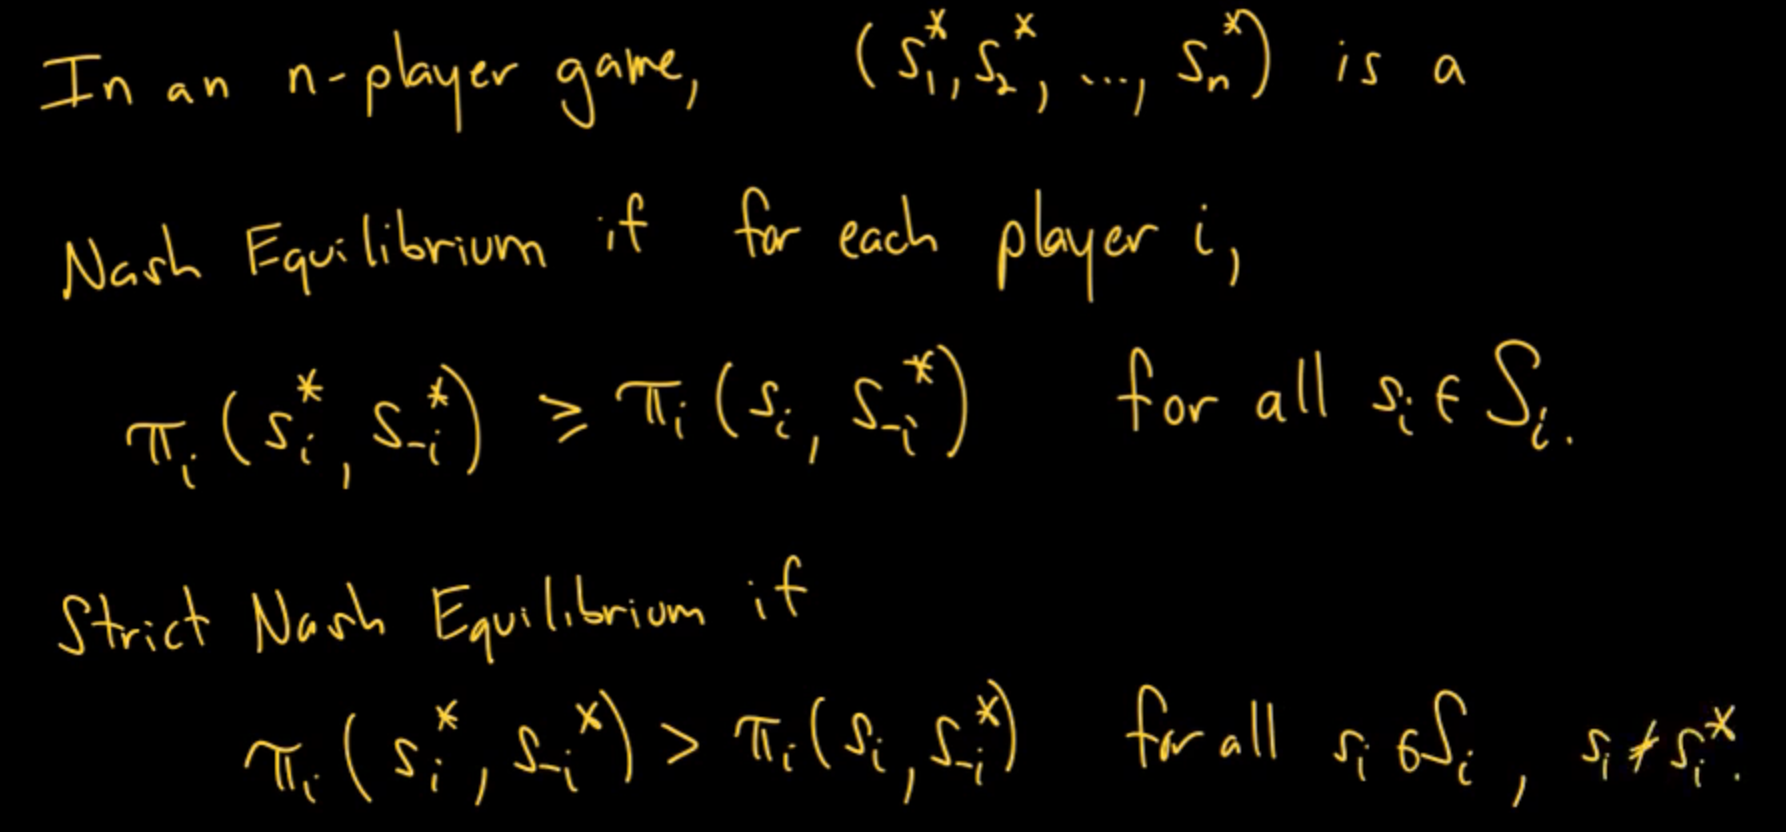 In an n-player game, (s₁*, s₂*, ..., sₙ*) is a
Nash Equilibrium if for each player i,
πᵢ(sᵢ*, s₋ᵢ*) ≥ πᵢ(sᵢ, s₋ᵢ*) for all sᵢ ∈ Sᵢ.
Strict Nash Equilibrium if
πᵢ(sᵢ*, s₋ᵢ*) > πᵢ(sᵢ, s₋ᵢ*) for all sᵢ ∈ Sᵢ, sᵢ ≠ sᵢ*.